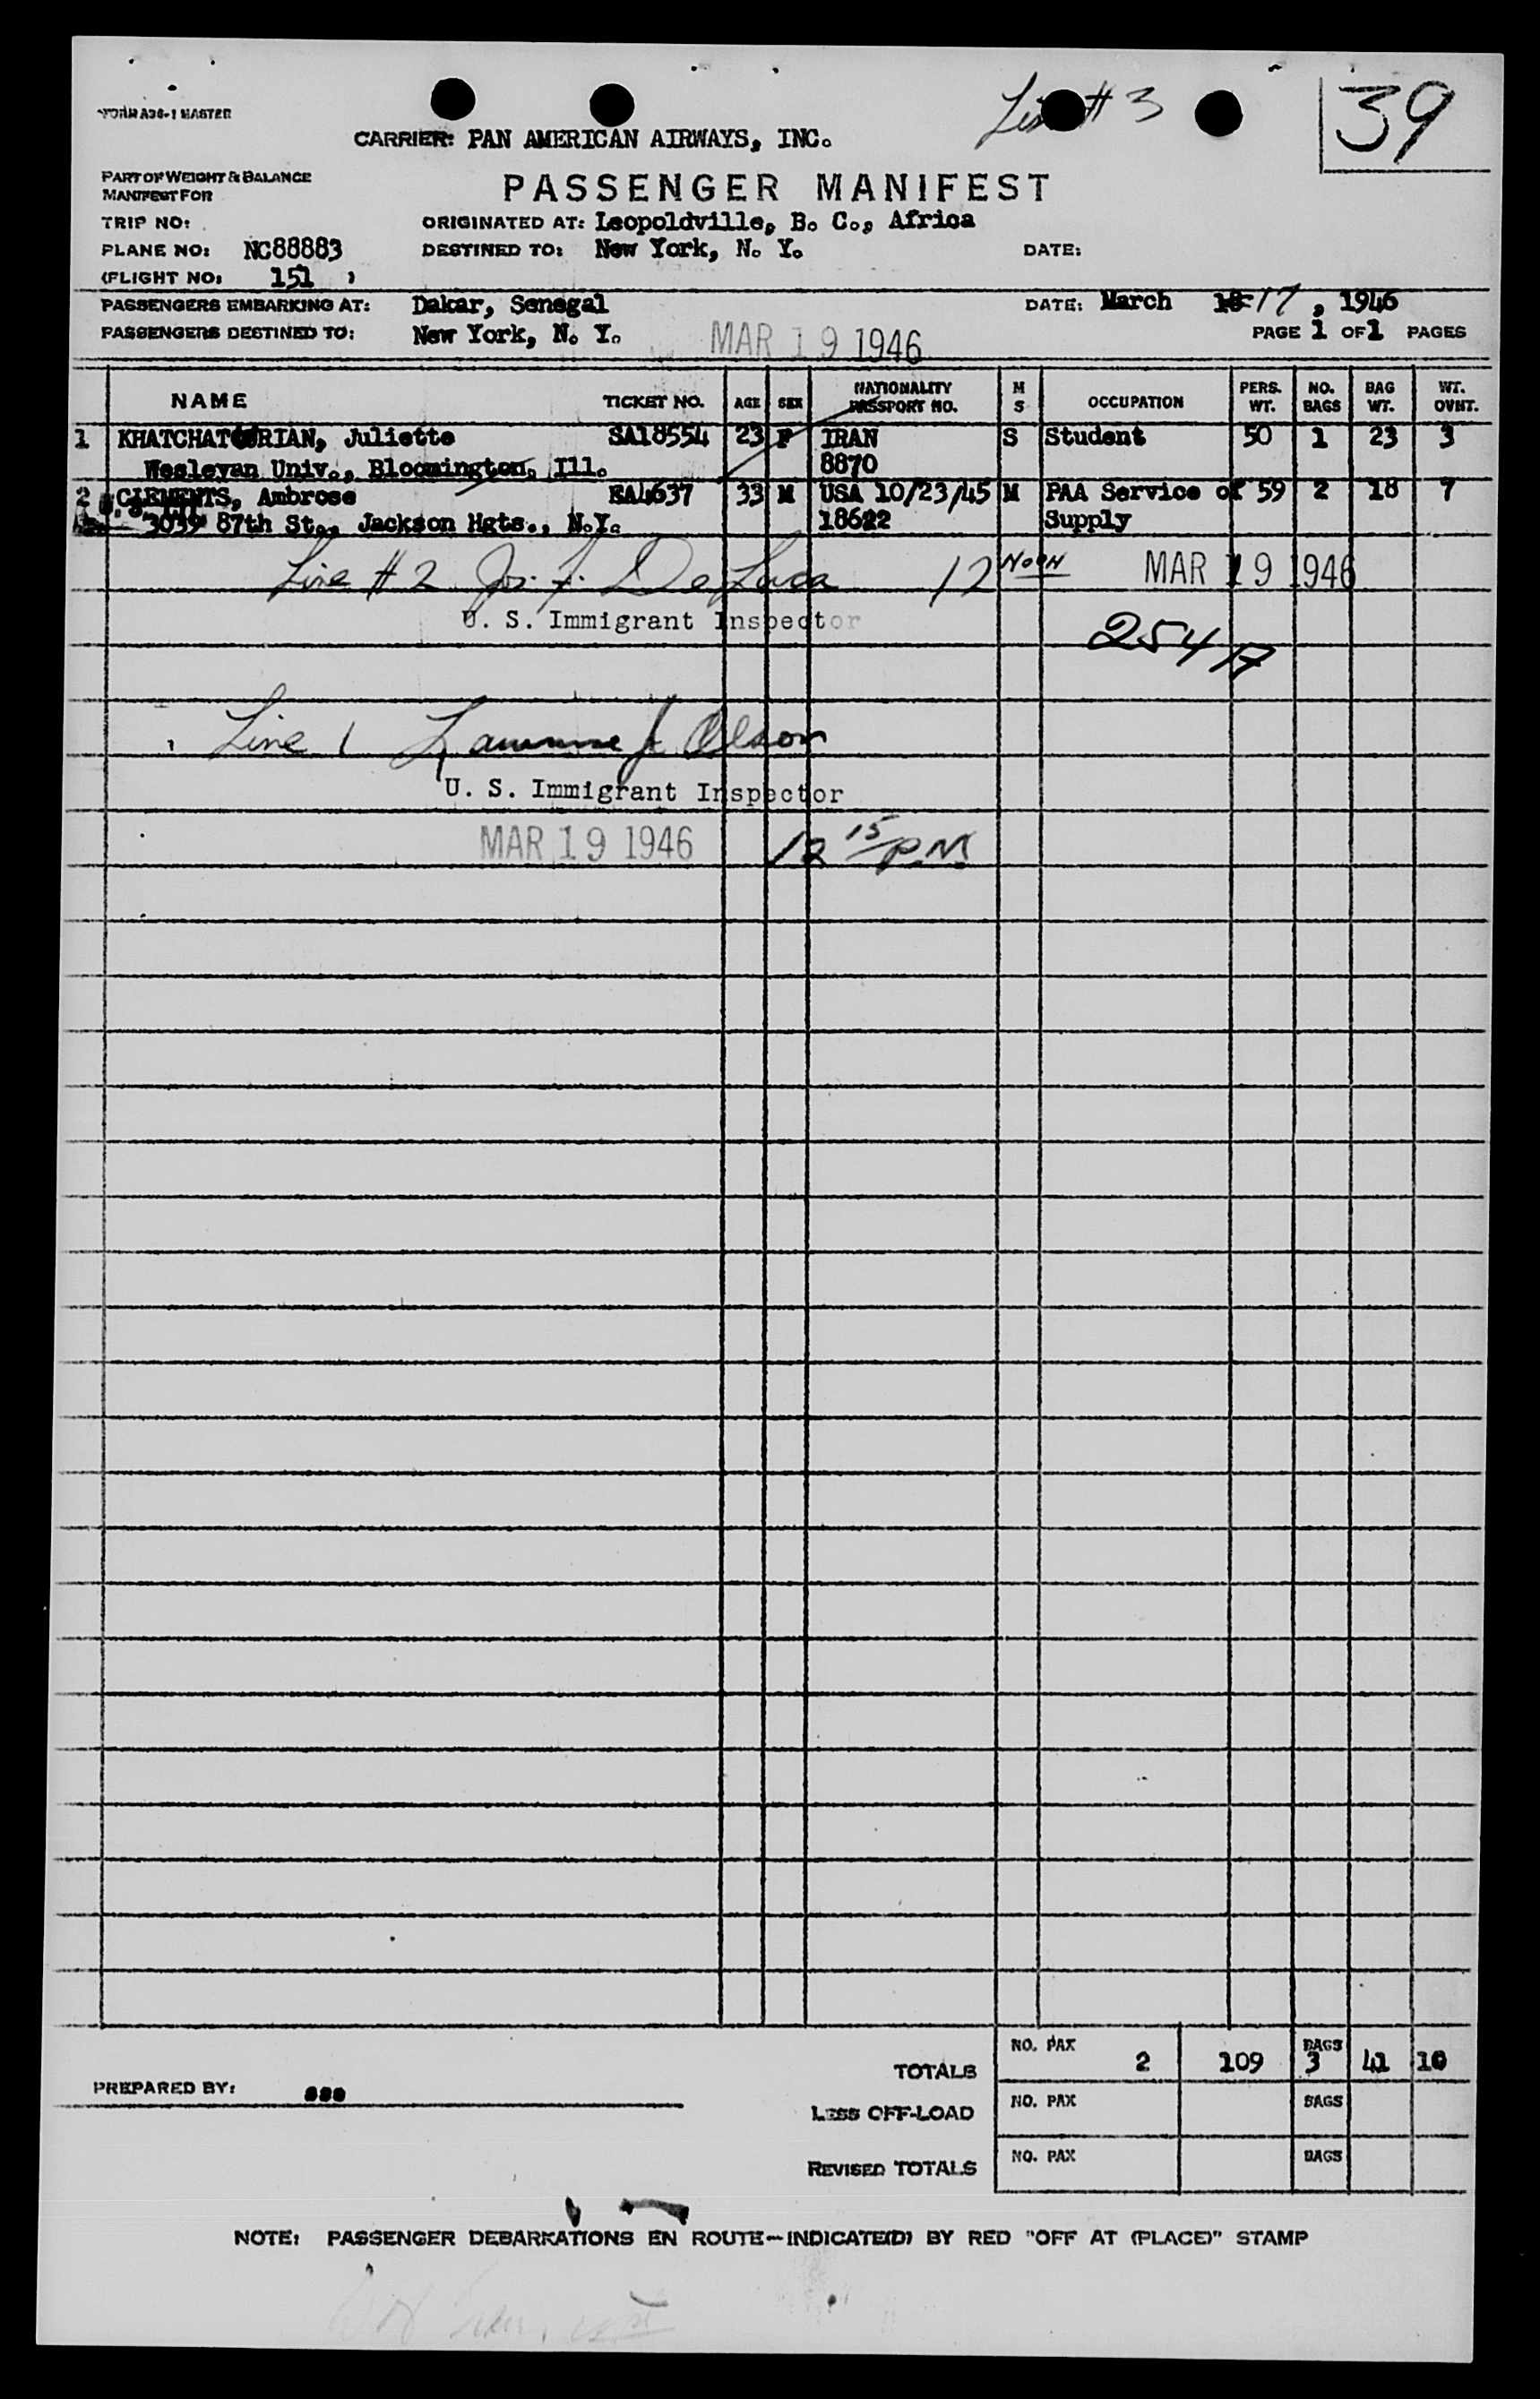 List # 3
39
FORM A36-1 MASTER
CARRIER: PAN AMERICAN AIRWAYS, INC.
PART OF WEIGHT & BALANCE
MANIFEST FOR
PASSENGER MANIFEST
TRIP NO:
ORIGINATED AT: Leopoldville, B. C., Africa
PLANE NO: NC88883
DESTINED TO: New York, N. Y.
DATE:
(FLIGHT NO: 151 )
PASSENGERS EMBARKING AT: Dakar, Senegal
DATE: March 18 17, 1946
PASSENGERS DESTINED TO: New York, N. Y.
MAR 19 1946
PAGE 1 OF 1 PAGES
NAME TICKET NO. AGE SEX NATIONALITY PASSPORT NO. M S OCCUPATION PERS. WT. NO. BAGS BAG WT. WT. OVHT.
1 KHATCHATOURIAN, Juliette SA18554 23 F IRAN S Student 50 1 23 3
Wesleyan Univ., Bloomington, Ill. 8870
2 CLEMENTS, Ambrose EA4637 33 M USA 10/23/45 M PAA Service of 59 2 18 7
3039 87th St., Jackson Hgts., N.Y. 18622 Supply
Line # 2 Jos. F. DeLuca 12 NOON MAR 19 1946
U. S. Immigrant Inspector
254
Line 1 Lawrence J. Olson
U. S. Immigrant Inspector
MAR 19 1946 12 15 P.M
TOTALS NO. PAX 2 109 BAGS 3 41 10
PREPARED BY:
LESS OFF-LOAD NO. PAX BAGS
REVISED TOTALS NO. PAX BAGS
NOTE: PASSENGER DEBARKATIONS EN ROUTE—INDICATE(D) BY RED "OFF AT (PLACE)" STAMP